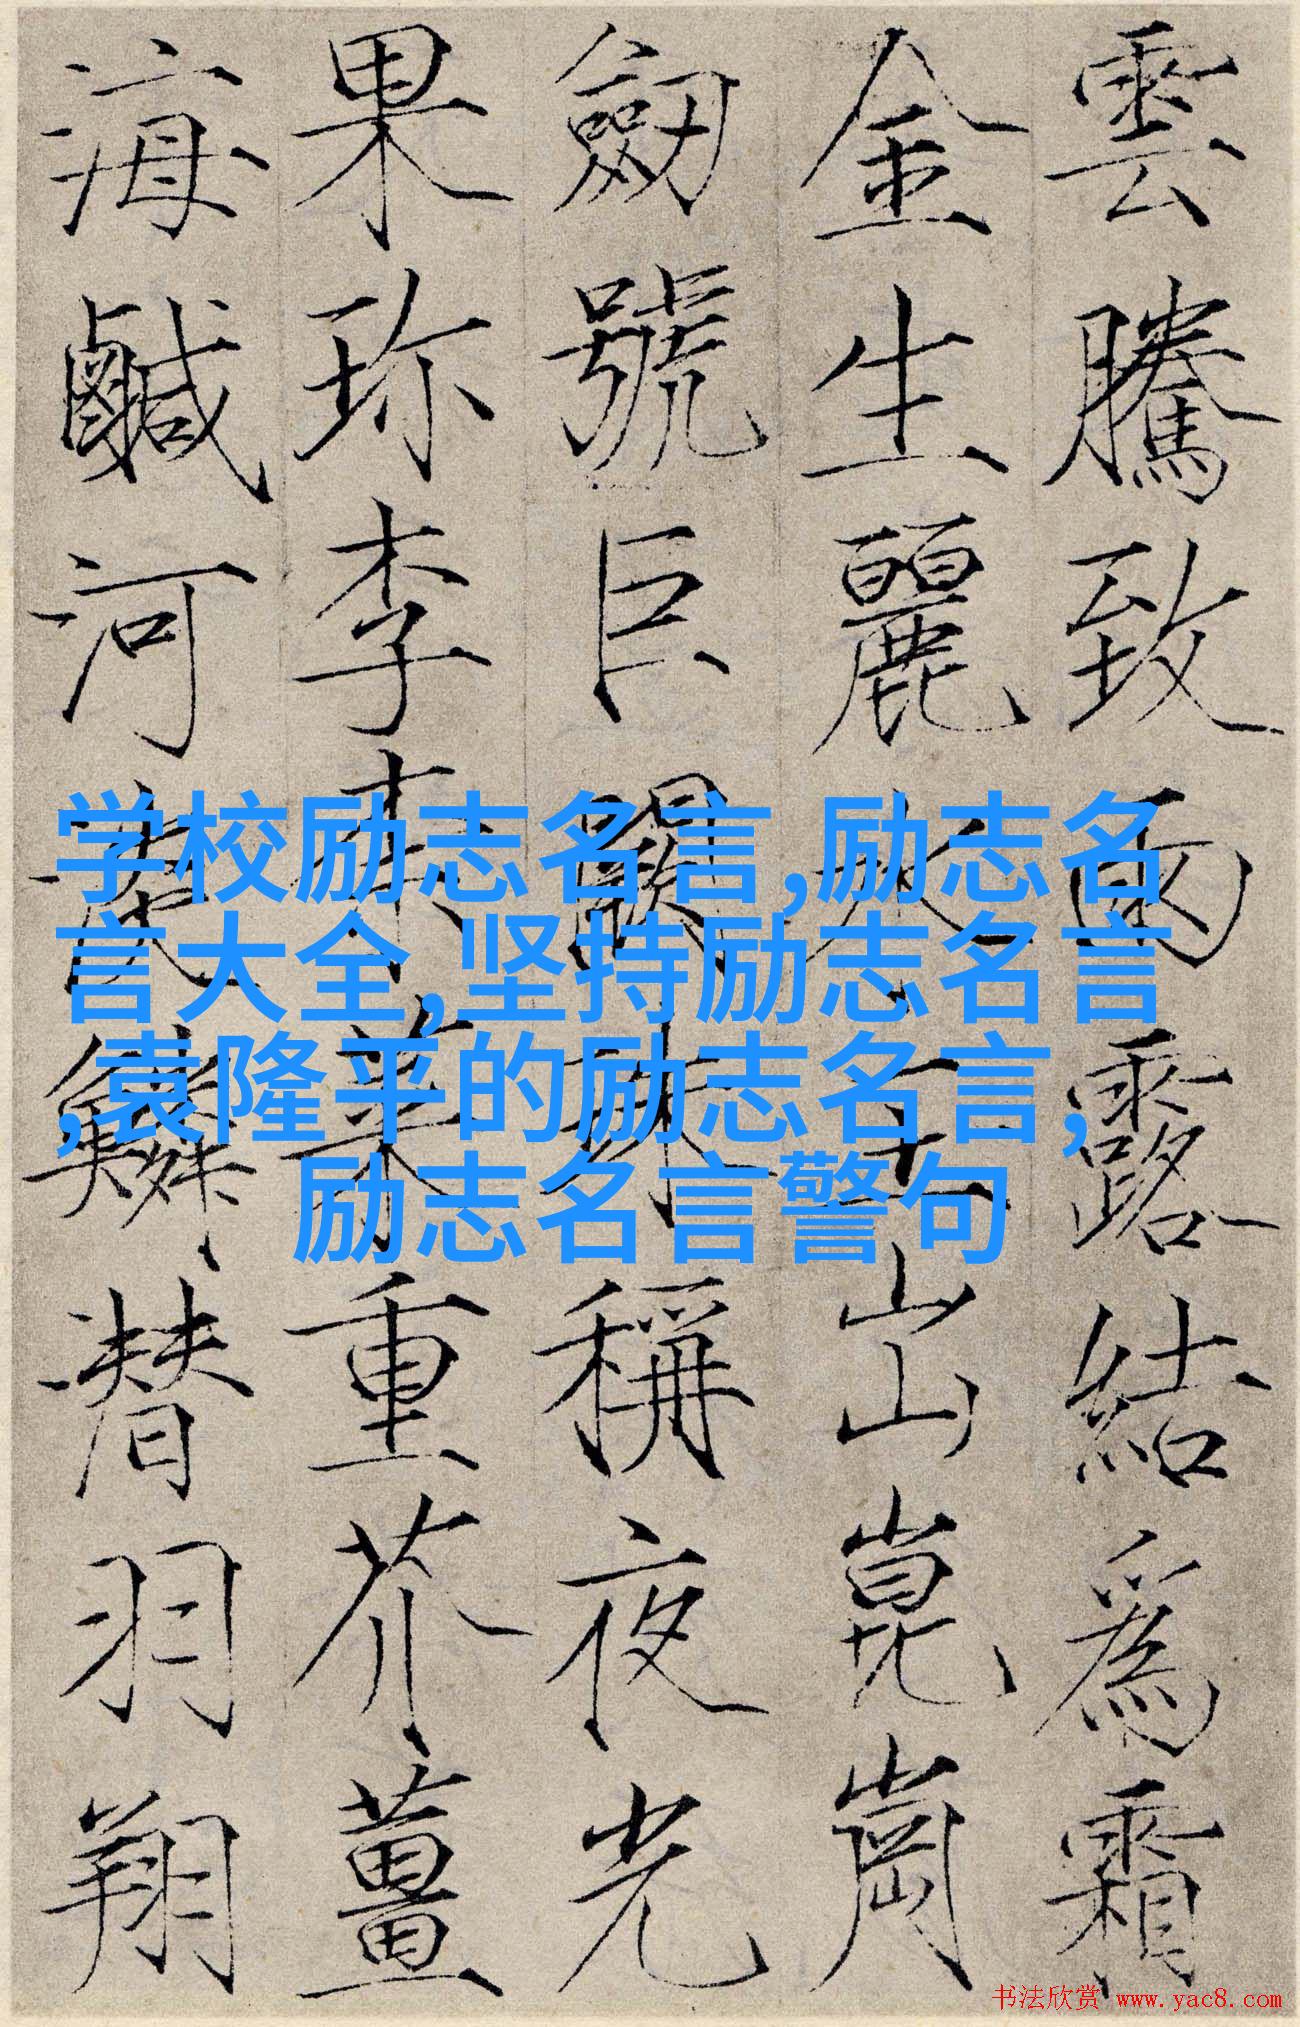 雲騰致雨露結爲霜
金生麗水玉出崑崗
劔號巨闕珠稱夜光
果珎李柰菜重芥薑
海鹹河淡鱗潛羽翔
学校励志名言,励志名
言大全,坚持励志名言
,袁隆平的励志名言,
励志名言警句
书法欣赏 www.yac8.com